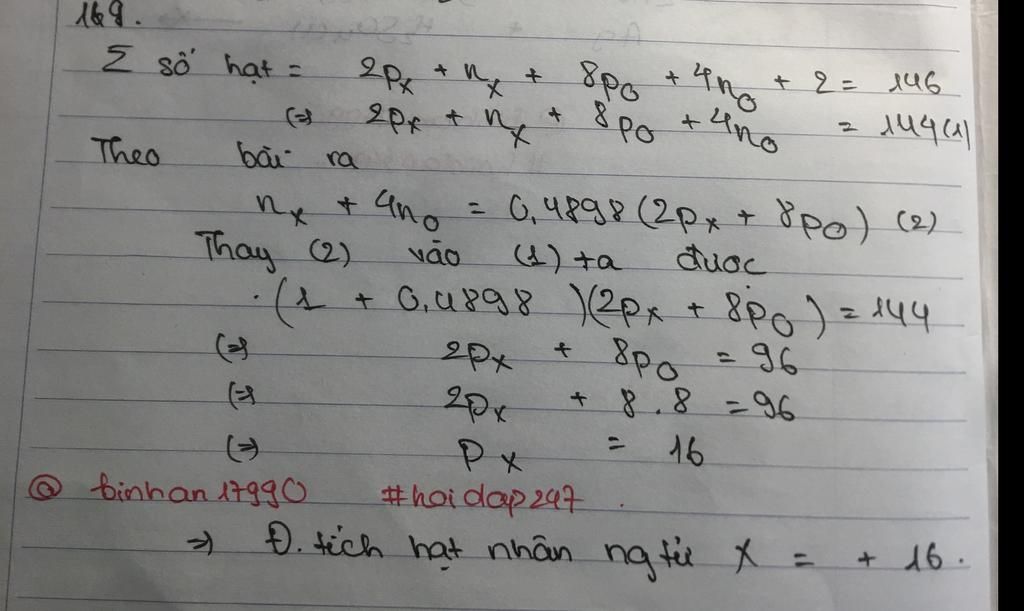 169.
Σ số hạt = 2pₓ + nₓ + 8p_O + 4n_O + 2 = 146
(=) 2pₓ + nₓ + 8p_O + 4n_O = 144 (1)
Theo bài ra
nₓ + 4n_O = 0,4898 (2pₓ + 8p_O) (2)
Thay (2) vào (1) ta được
(1 + 0,4898 )(2pₓ + 8p_O) = 144
(=) 2pₓ + 8p_O = 96
(=) 2pₓ + 8.8 = 96
(=) pₓ = 16
@ binhan17990 #hoidap247.
=) Đ. tích hạt nhân ng tử X = + 16.